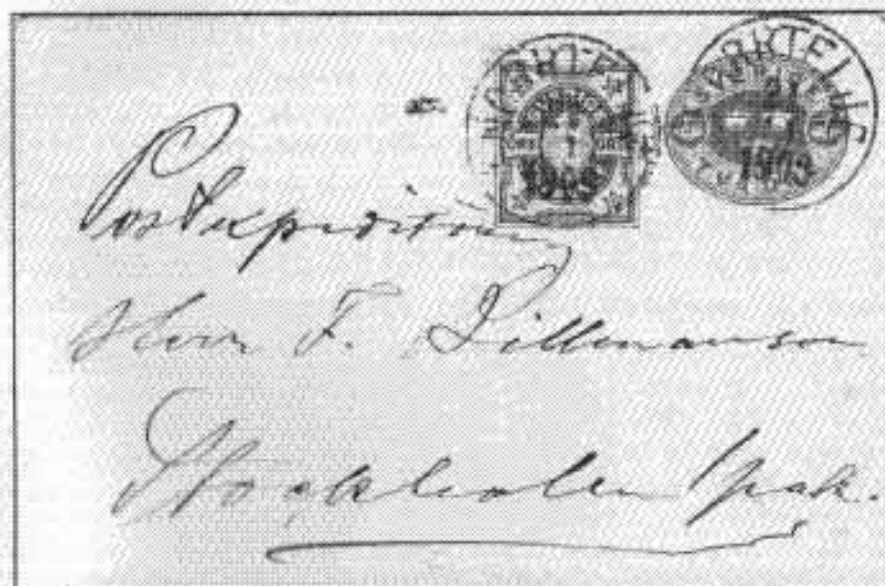 NORRTELJE
NORRTELJE
1903
1903
Postexpeditören
Herr F. Lillmanson
Stockholm 1 pak.